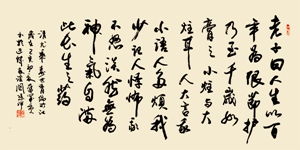 老子曰人生以百
年為限節护
乃至千歲如
膏之小炷与大
炷耳人大言我
小語人多煩我
少记人悸怖我
不怒淡然無為
神氣自满
此長生之药